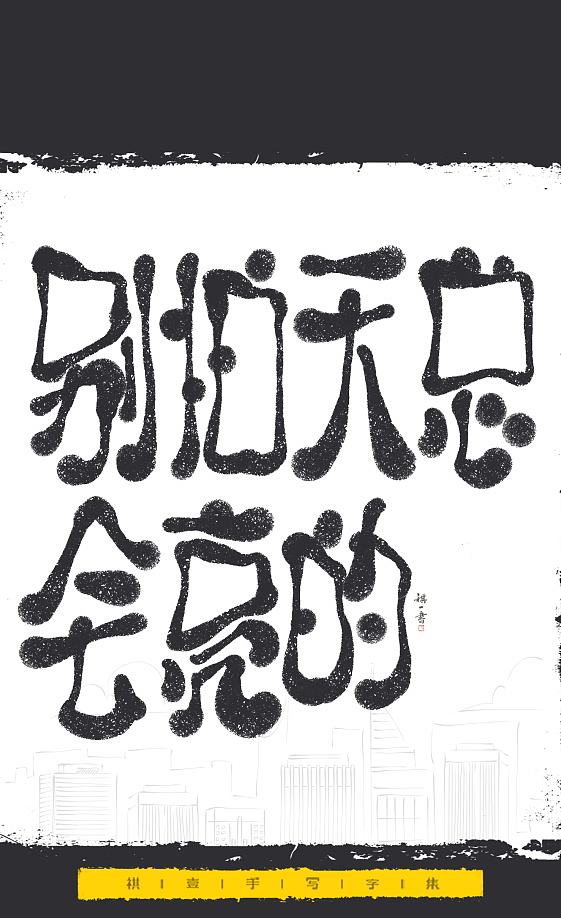 别怕天总
会亮的
祺一书
祺 | 壹 | 手 | 写 | 字 | 集